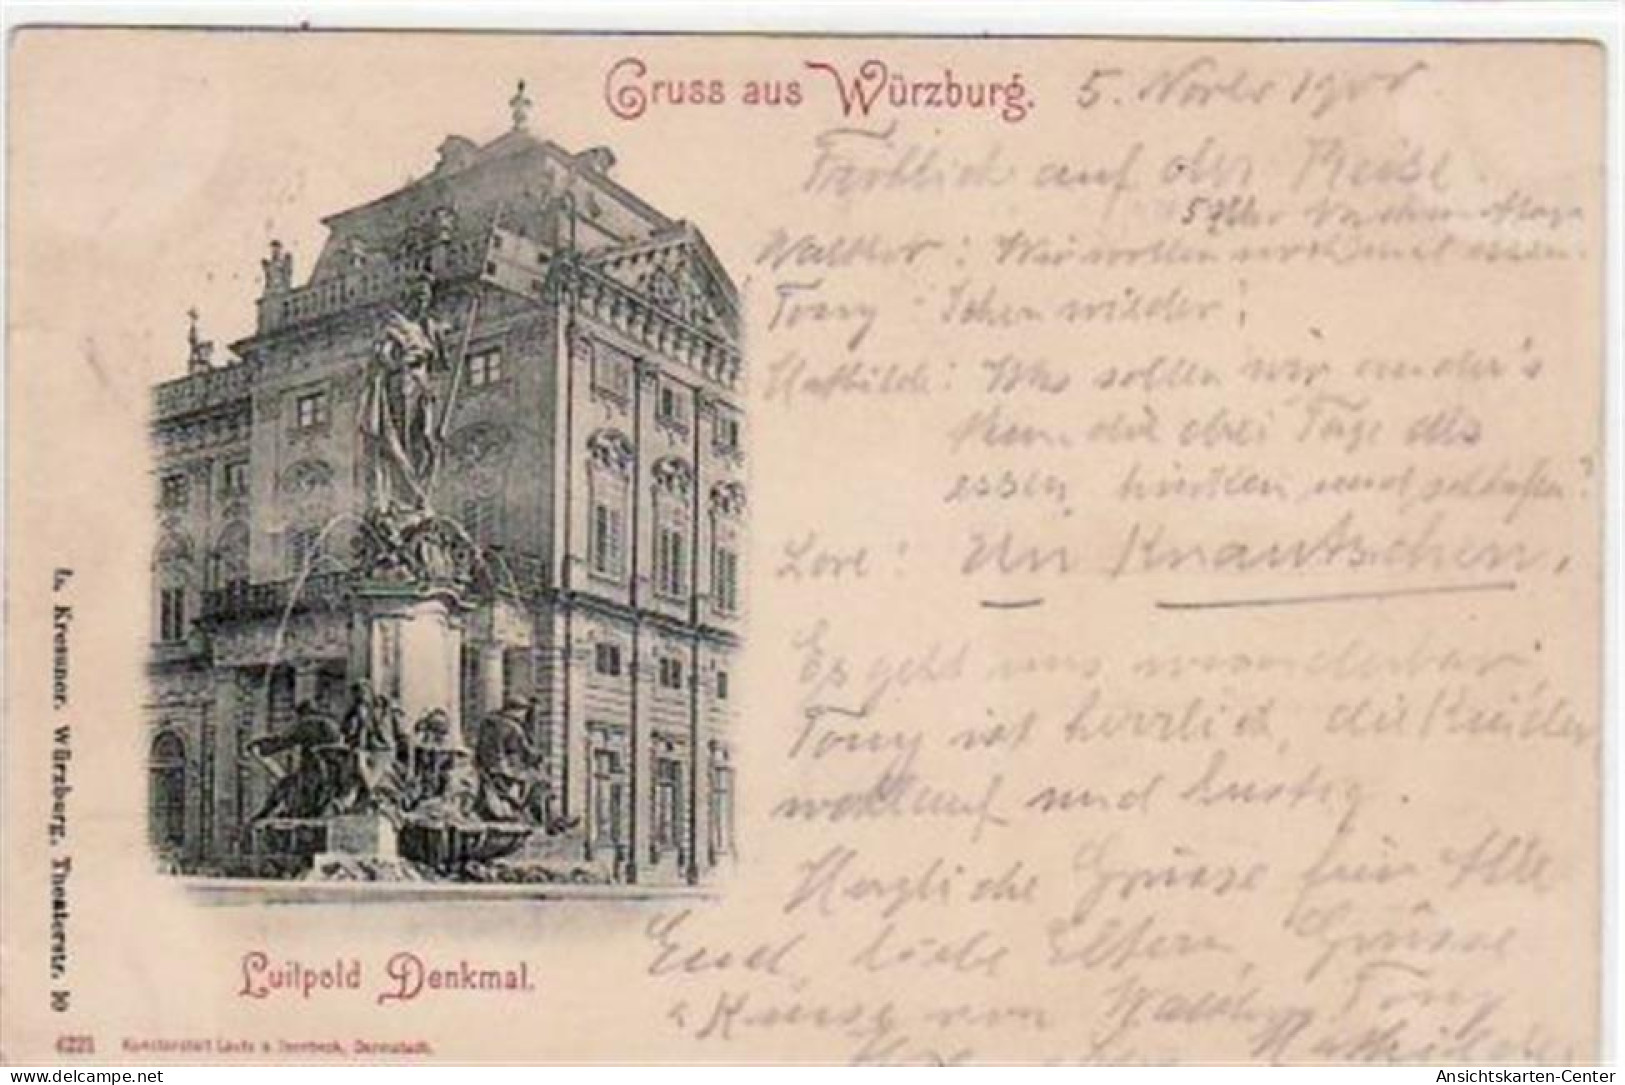 Gruss aus Würzburg.
5. Novbr 1900
Fröhlich auf der Reise
Walther: Wir wollen noch mal essen.
Tony: Schon wieder!
Mathilde: Was sollen wir anders
die drei Tage als
essen, trinken und schlafen?
Lore: Un Knautschen.
Es geht uns wunderbar,
Tony ist herzlich, die Kinder
wohlauf und lustig.
Herzliche Grüsse für Alle
Euch, liebe Eltern, Grüsse
& Küsse von Walther, Tony
Mathilde
Luitpold Denkmal.
L. Kressner, Würzburg, Theaterstr. 10
4221 Kunstanstalt Lautz & Isenbeck, Darmstadt.
Ansichtskarten-Center